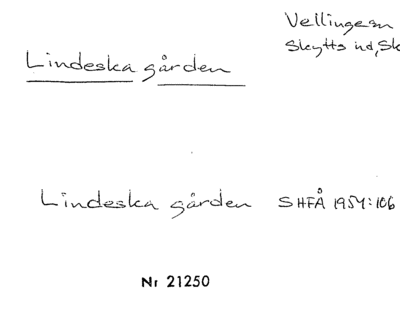 Vellinge sn
Skytts hd, Sk
Lindeska gården
Lindeska gården SHFÅ 1954:106
Nr 21250